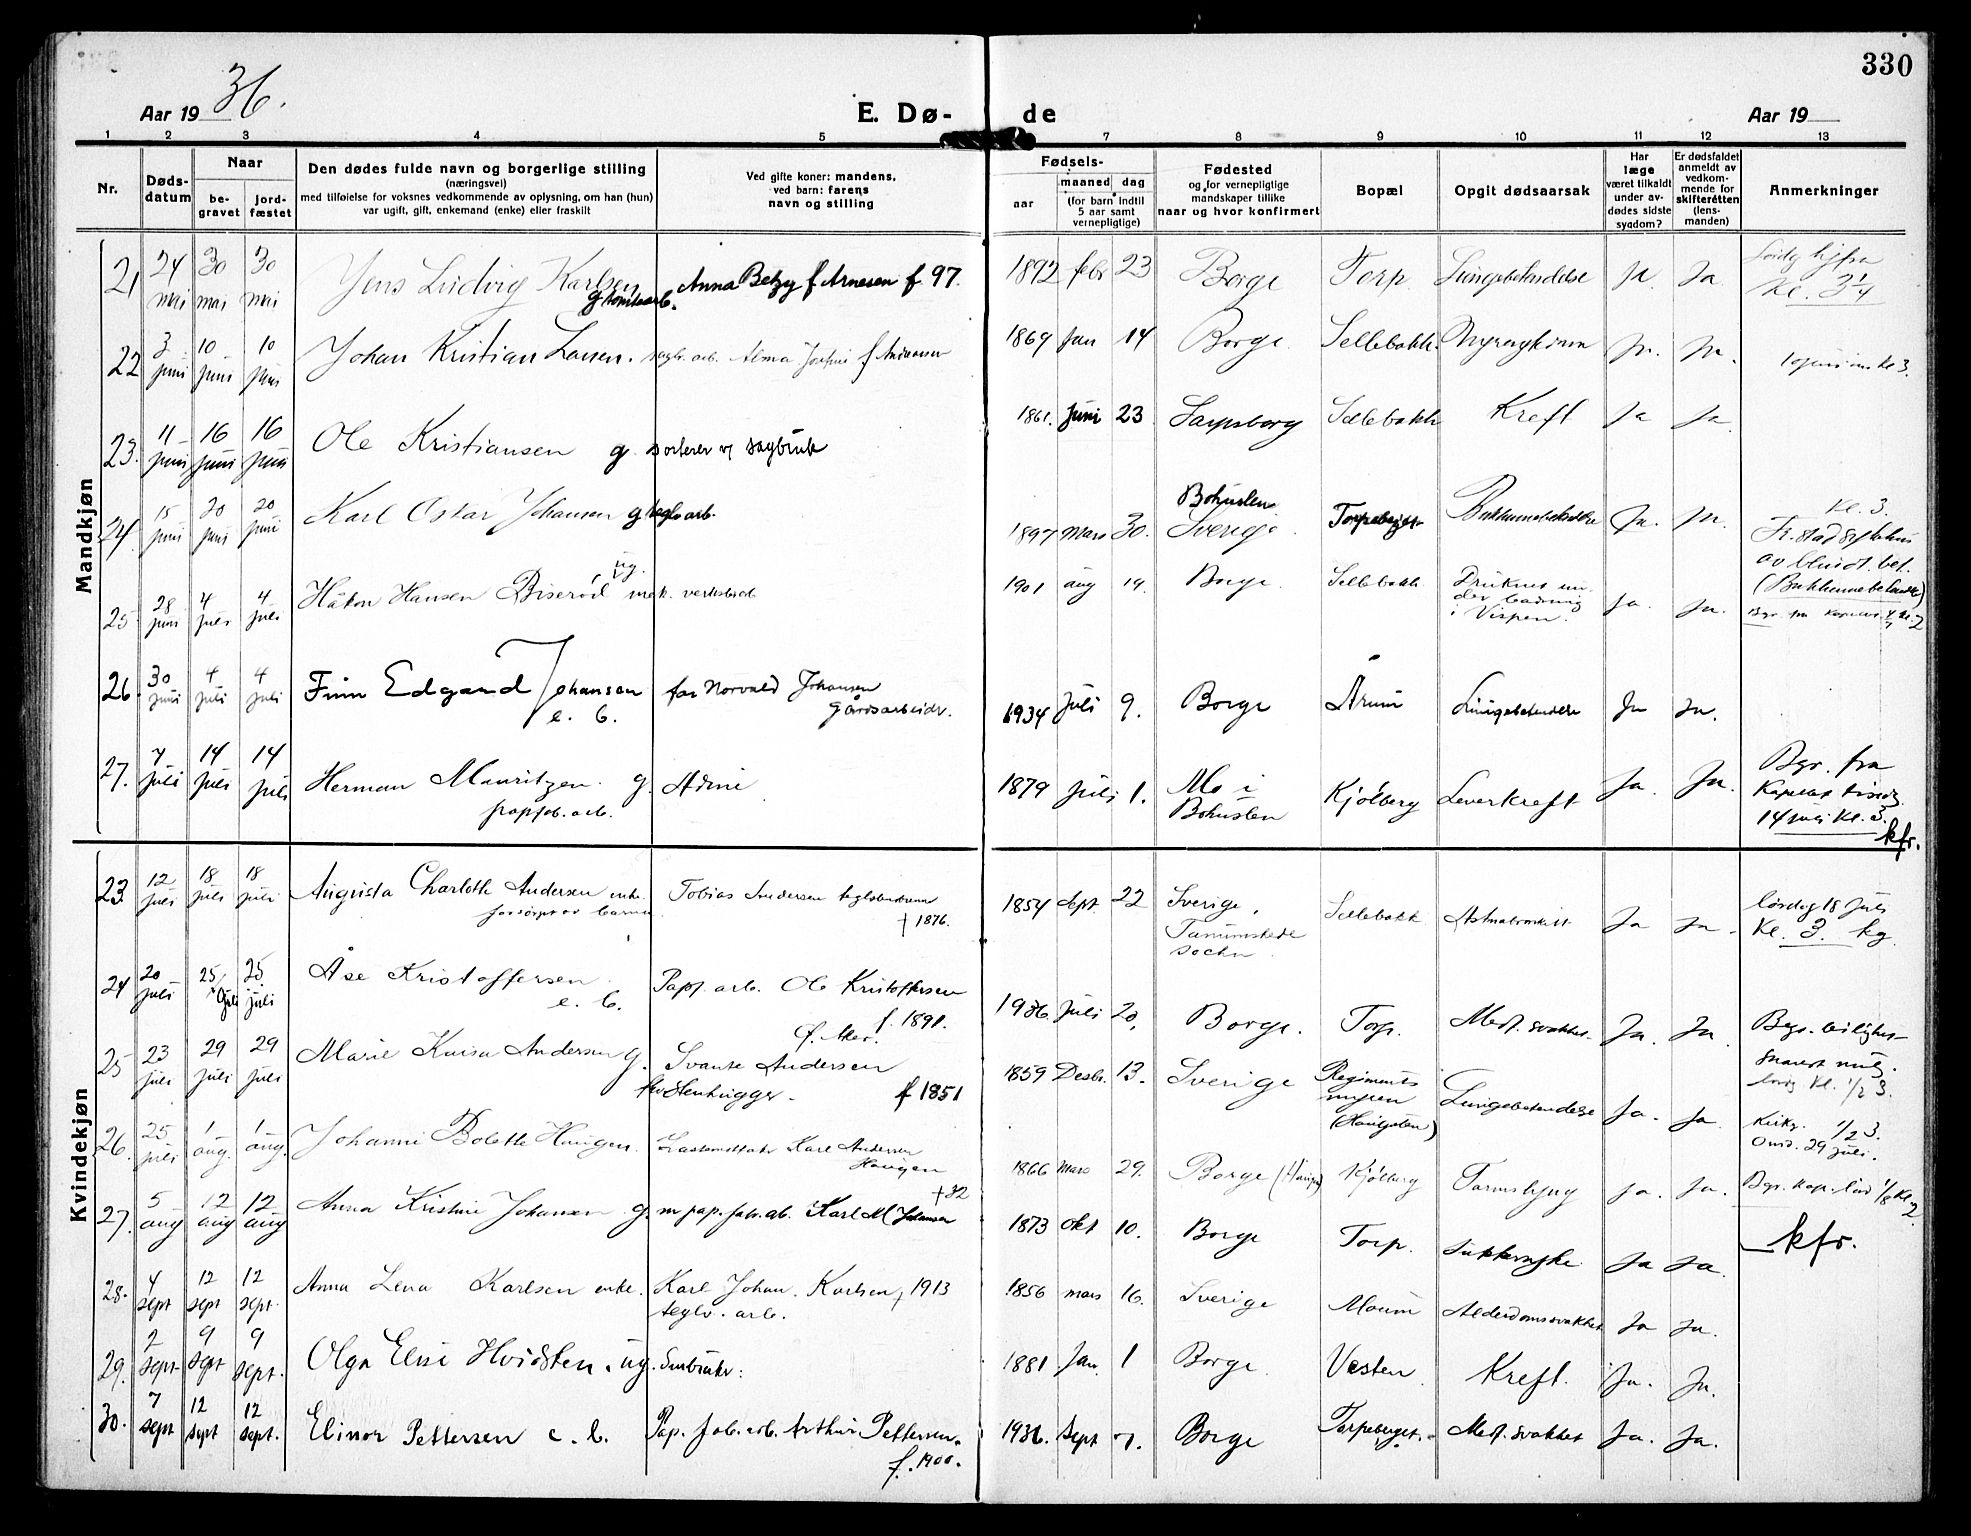 330
Aar 1936.
E. Dø-
de
Aar 19
1 2 3 4 5 7 8 9 10 11 12 13
Nr.
Døds-
datum
Naar
be-
gravet
jord-
fæstet
Den dødes fulde navn og borgerlige stilling
(næringsvei)
med tilføielse for voksnes vedkommende av oplysning, om han (hun)
var ugift, gift, enkemand (enke) eller fraskilt
Ved gifte koner: mandens,
ved barn: farens
navn og stilling
Fødsels-
aar
maaned dag
(for barn indtil
5 aar samt
vernepligtige)
Fødested
og for vernepligtige
mandskaper tillike
naar og hvor konfirmert
Bopæl
Opgit dødsaarsak
Har
læge
været tilkaldt
under av-
dødes sidste
sygdom?
Er dødsfaldet
anmeldt av
vedkom-
mende for
skifteretten
(lens-
manden)
Anmerkninger
Mandkjøn
21 24 mai 30 mai 30 mai Jens Ludvig Karlsen Anna Betzy f Arnesen f 97. 1892 febr 23 Borge Torp Lungebetendelse Ja Ja
g tomtearb. Kl. 3 1/4
22 3 juni 10 juni 10 juni Johan Kristian Larsen. 1869 Jan 14 Borge Sellebakk Ja. Ja.
23. 11 juni 16 juni 16 juni Ole Kristiansen g. sorterer v/ sagbruk 1861. Juni 23 Sarpsborg Sellebakk Kreft Ja Ja
24. 15 juni 20 juni 20 juni Karl Oskar Johansen g teglv arb. 1897 Mars 30. Bohuslen Sverige Torpeberget Bukhinnebetendelse Ja. Ja. Kl. 3.
Fr.stad sykehus
av blindt. bet.
(Bukhinnebetendelse)
25 28 juni 4 juli 4 juli Håkon Hansen Biserød ug. mek. verkstedarb 1901 aug 19. Borge Sellebakk Druknet un-
der badning
i Vispen. Ja. Ja.
26. 30 juni 4 juli 4 juli Finn Edgard Johansen far Norvald Johansen 1934 Juli 9. Borge Årum Lungebetendelse Ja Ja.
e. b. gårdsarbeider.
27. 7 juli 14 juli 14 juli Herman Mauritzen. g. Adine 1879 Juli 1. Mo i
Bohuslen Kjølberg Leverkreft Ja. Ja. Bgr. fra
papfab. arb. Kapellet tirsdag
14 juli Kl. 3.
kfr.
Kvindekjøn
23. 12 juli 18 juli 18 juli Augusta Charlotte Andersen enke. Tobias Andersen 1854 Sept. 22 Sverige,
Tanumshede
sochn Sellebakk Astmabronkitt Ja Ja. lørdag 18 juli
forsørget av barna † 1876. Kl. 3. kg.
24 20 juli 25 juli 25 juli Åse Kristoffersen Papf. arb. Ole Kristoffersen 1936 Juli 20. Borge. Torp. Medf. svakhet. Ja. Ja
e. b. f. 1891.
25 23 juli 29 juli 29 juli Marie Luisa Andersen g. Svante Andersen 1859 Desbr. 13. Sverige Regiments
myren
(Haugsten) Lungebetendelse Ja. Ja. Kirkg. 1/2 3.
Onsd. 29 juli.
fhv Stenhugger. f 1851
26. 25 juli 1 aug. 1 aug. Johanne Bolette Haugen. Karl Andersen
Haugen 1866 Mars 29. Borge Kjølberg Tarmslyng Ja. Ja.
† 32
27. 5 aug 12 aug 12 aug Anna Kristine Johansen g. m pap. fab. ab. Karl M Johansen 1873 Okt 10. Borge Torp. Sukkersyke Ja Ja. kfr.
28. 4 sept 12 sept 12 sept. Anna Lena Karlsen enke. Karl Johan Karlsen † 1913 1856 mars 16. Sverige Moum Alderdomssvakhet Ja Ja.
teglv. arb.
29. 2 sept 9 sept 9 sept. Olga Elise Hvidsten. ug. Småbruker. 1881 Jan. 1 Borge. Vesten Kreft. Ja. Ja.
30. 7 sept 12 sept 12 sept. Elinor Pettersen e. b. Pap. fab. arb. Arthur Pettersen. 1936. Sept 7. Borge Torpeberget. Medf. svakhet Ja. Ja.
f. 1900.